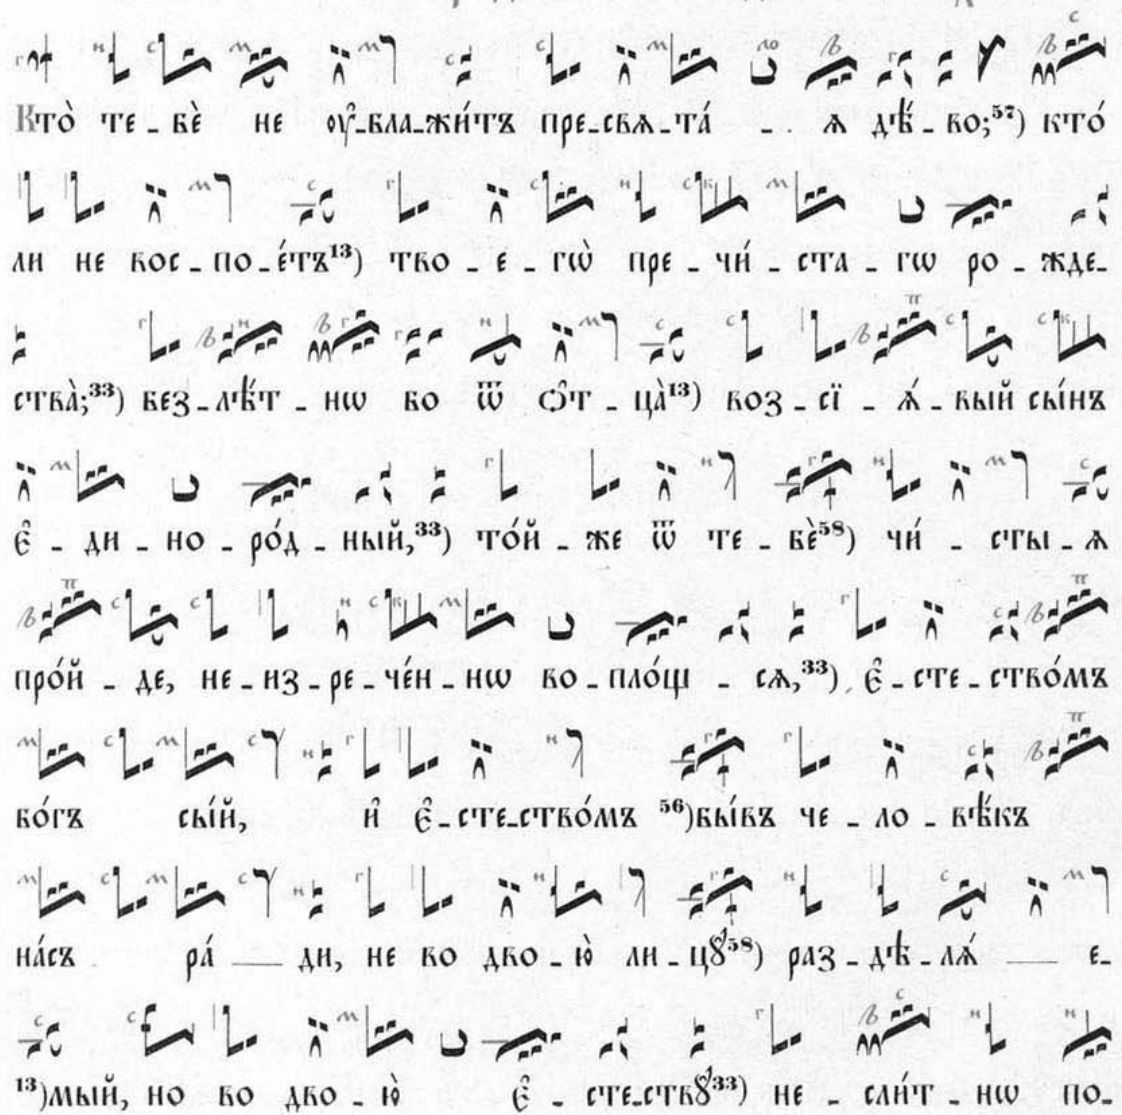 Кто̀ те - бѐ не ᲂу҆ - бла - жи́тъ пре - свѧ - та́ - - ѧ дѣ́ - во;⁵⁷) кто́
ли не вос - по - е́тъ¹³) тво - е - гѡ̀ пре - чи́ - ста - гѡ ро - жде-
ства̀;³³) без - лѣ́т - нѡ бо ѿ ѻ҆т - ца̀¹³) воз - сї - ѧ́ - вый сы́нъ
є҆ - ди - но - ро́д - ный,³³) то́й - же ѿ те - бѐ⁵⁸) чи́ - сты - ѧ
про́й - де, не - из - ре - че́н - нѡ во - пло́щ - сѧ,³³) є҆ - сте - ство́мъ
бо́гъ сы́й, и҆ є҆ - сте - ство́мъ ⁵⁶)бы́въ че - ло - вѣ́къ
на́съ ра́ — ди, не во дво - ю̀ ли - цꙋ̀⁵⁸) раз - дѣ - лѧ́ — е-
¹³)мый, но во дво - ю̀ є҆ - сте - ствꙋ̀³³) не - сли́т - нѡ по-